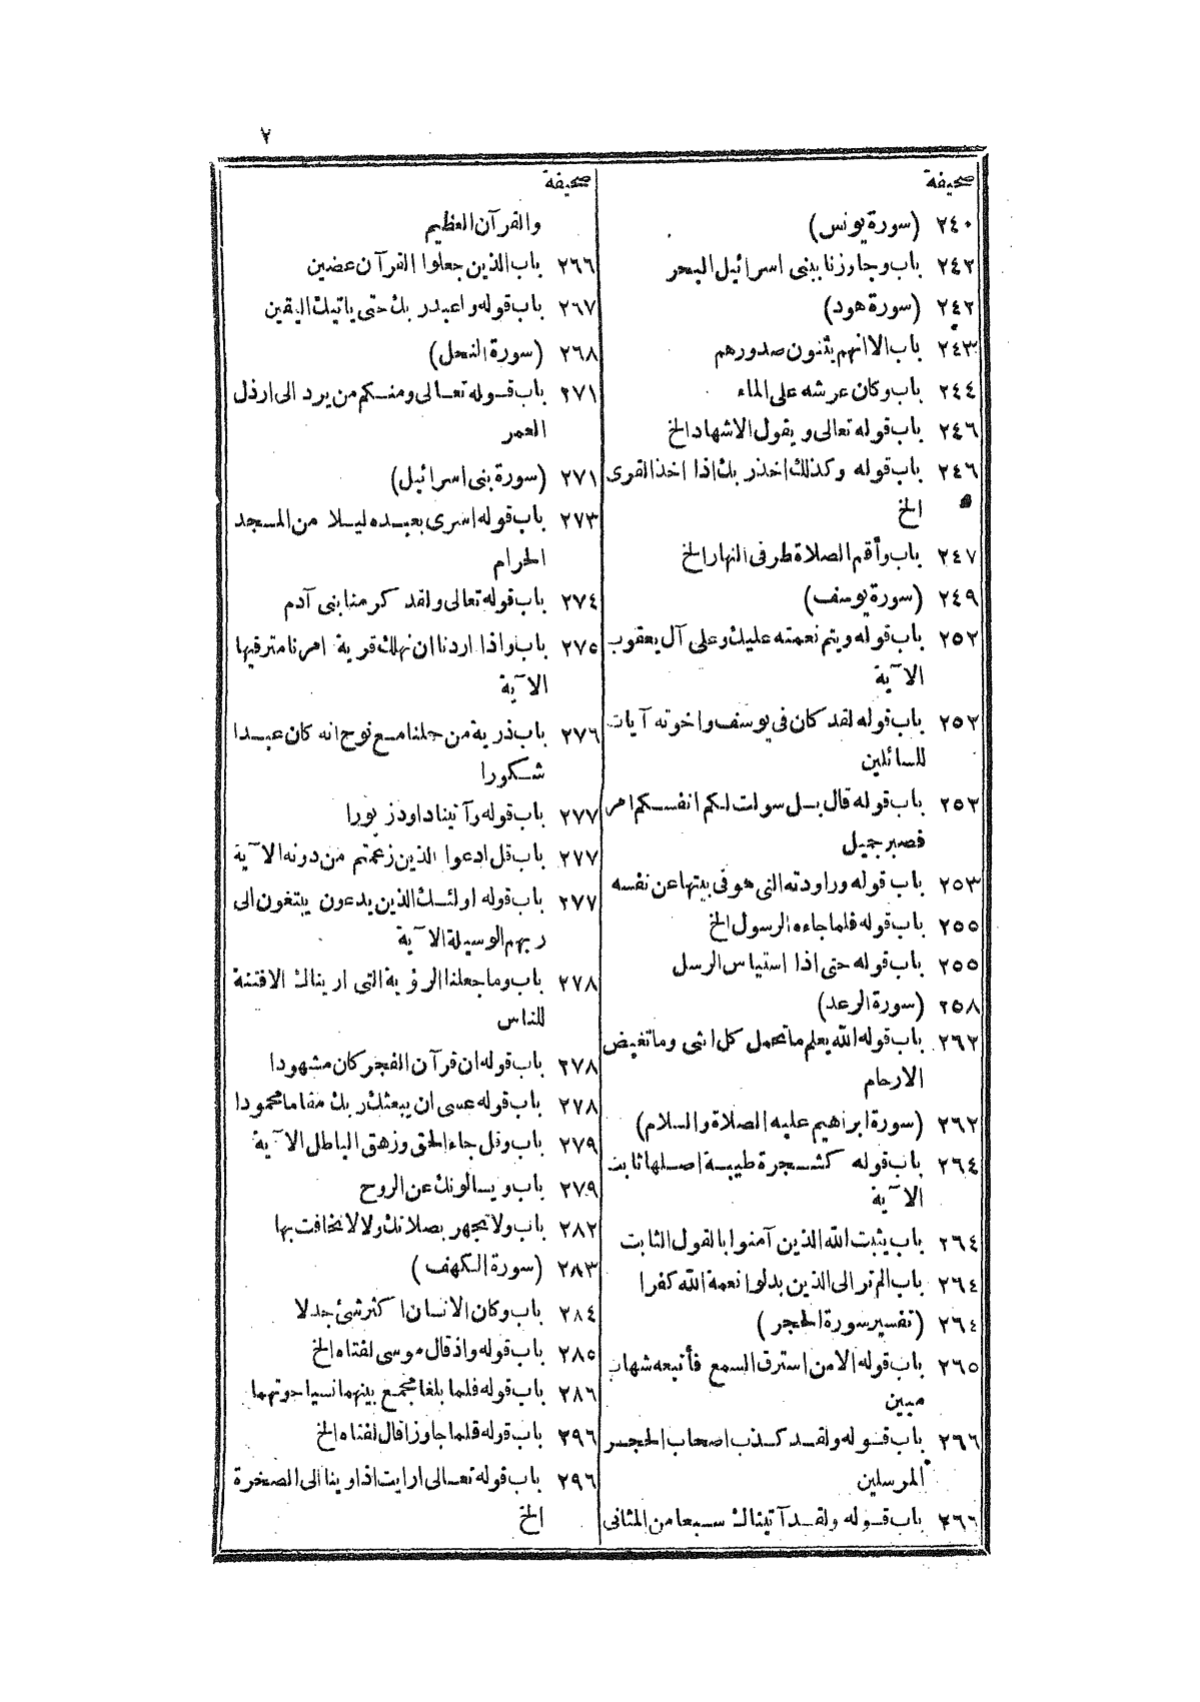 ٧
صحيفة
٢٤٠ (سورة يونس)
٢٤٢ باب وجاوزنا ببنى اسرائيل البحر
٢٤٢ (سورة هود)
٢٤٣ باب الا انهم يثنون صدورهم
٢٤٤ باب وكان عرشه على الماء
٢٤٦ باب قوله تعالى ويقول الاشهاد الخ
٢٤٦ باب قوله وكذلك اخذ ربك اذا اخذ القرى
الخ
٢٤٧ باب وأقم الصلاة طرفى النهار الخ
٢٤٩ (سورة يوسف)
٢٥٢ باب قوله ويتم نعمته عليك وعلى آل يعقوب
الآية
٢٥٢ باب قوله لقد كان فى يوسف واخوته آيات
للسائلين
٢٥٣ باب قوله قال بل سولت لكم انفسكم امر
فصبر جميل
٢٥٣ باب قوله وراودته التى هو فى بيتها عن نفسه
٢٥٥ باب قوله فلما جاءه الرسول الخ
٢٥٥ باب قوله حتى اذا استياس الرسل
٢٥٨ (سورة الرعد)
٢٦٢ باب قوله الله يعلم ما تحمل كل انثى وما تغيض
الارحام
٢٦٢ (سورة ابراهيم عليه الصلاة والسلام)
٢٦٤ باب قوله كشجرة طيبة اصلها ثابت
الآية
٢٦٤ باب يثبت الله الذين آمنوا بالقول الثابت
٢٦٤ باب الم تر الى الذين بدلوا نعمة الله كفرا
٢٦٤ (تفسير سورة الحجر)
٢٦٥ باب قوله الا من استرق السمع فأتبعه شهاب
مبين
٢٦٦ باب قوله ولقد كذب اصحاب الحجر
المرسلين
٢٦٦ باب قوله ولقد آتيناك سبعا من المثانى
صحيفة
والقرآن العظيم
٢٦٦ باب الذين جعلوا القرآن عضين
٢٦٧ باب قوله واعبد ربك حتى ياتيك اليقين
٢٦٨ (سورة النحل)
٢٧١ باب قوله تعالى ومنكم من يرد الى ارذل
العمر
٢٧١ (سورة بنى اسرائيل)
٢٧٣ باب قوله اسرى بعبده ليلا من المسجد
الحرام
٢٧٤ باب قوله تعالى ولقد كرمنا بنى آدم
٢٧٥ باب واذا اردنا ان نهلك قرية امرنا مترفيها
الآية
٢٧٦ باب ذرية من حملنا مع نوح انه كان عبدا
شكورا
٢٧٧ باب قوله وآتينا داود زبورا
٢٧٧ باب قل ادعوا الذين زعمتم من دونه الآية
٢٧٧ باب قوله اولئك الذين يدعون يبتغون الى
ربهم الوسيلة الآية
٢٧٨ باب وما جعلنا الرؤية التى اريناك الا فتنة
للناس
٢٧٨ باب قوله ان قرآن الفجر كان مشهودا
٢٧٨ باب قوله عسى ان يبعثك ربك مقاما محمودا
٢٧٩ باب وقل جاء الحق وزهق الباطل الآية
٢٧٩ باب ويسالونك عن الروح
٢٨٢ باب ولا تجهر بصلاتك ولا لاتخافت بها
٢٨٣ (سورة الكهف)
٢٨٤ باب وكان الانسان اكثر شئ جدلا
٢٨٥ باب قوله واذ قال موسى لفتاه الخ
٢٨٦ باب قوله فلما بلغا مجمع بينهما نسيا حوتهما
٢٩٦ باب قوله فلما جاوزا قال لفتاه الخ
٢٩٦ باب قوله تعالى ارايت اذ اوينا الى الصخرة
الخ